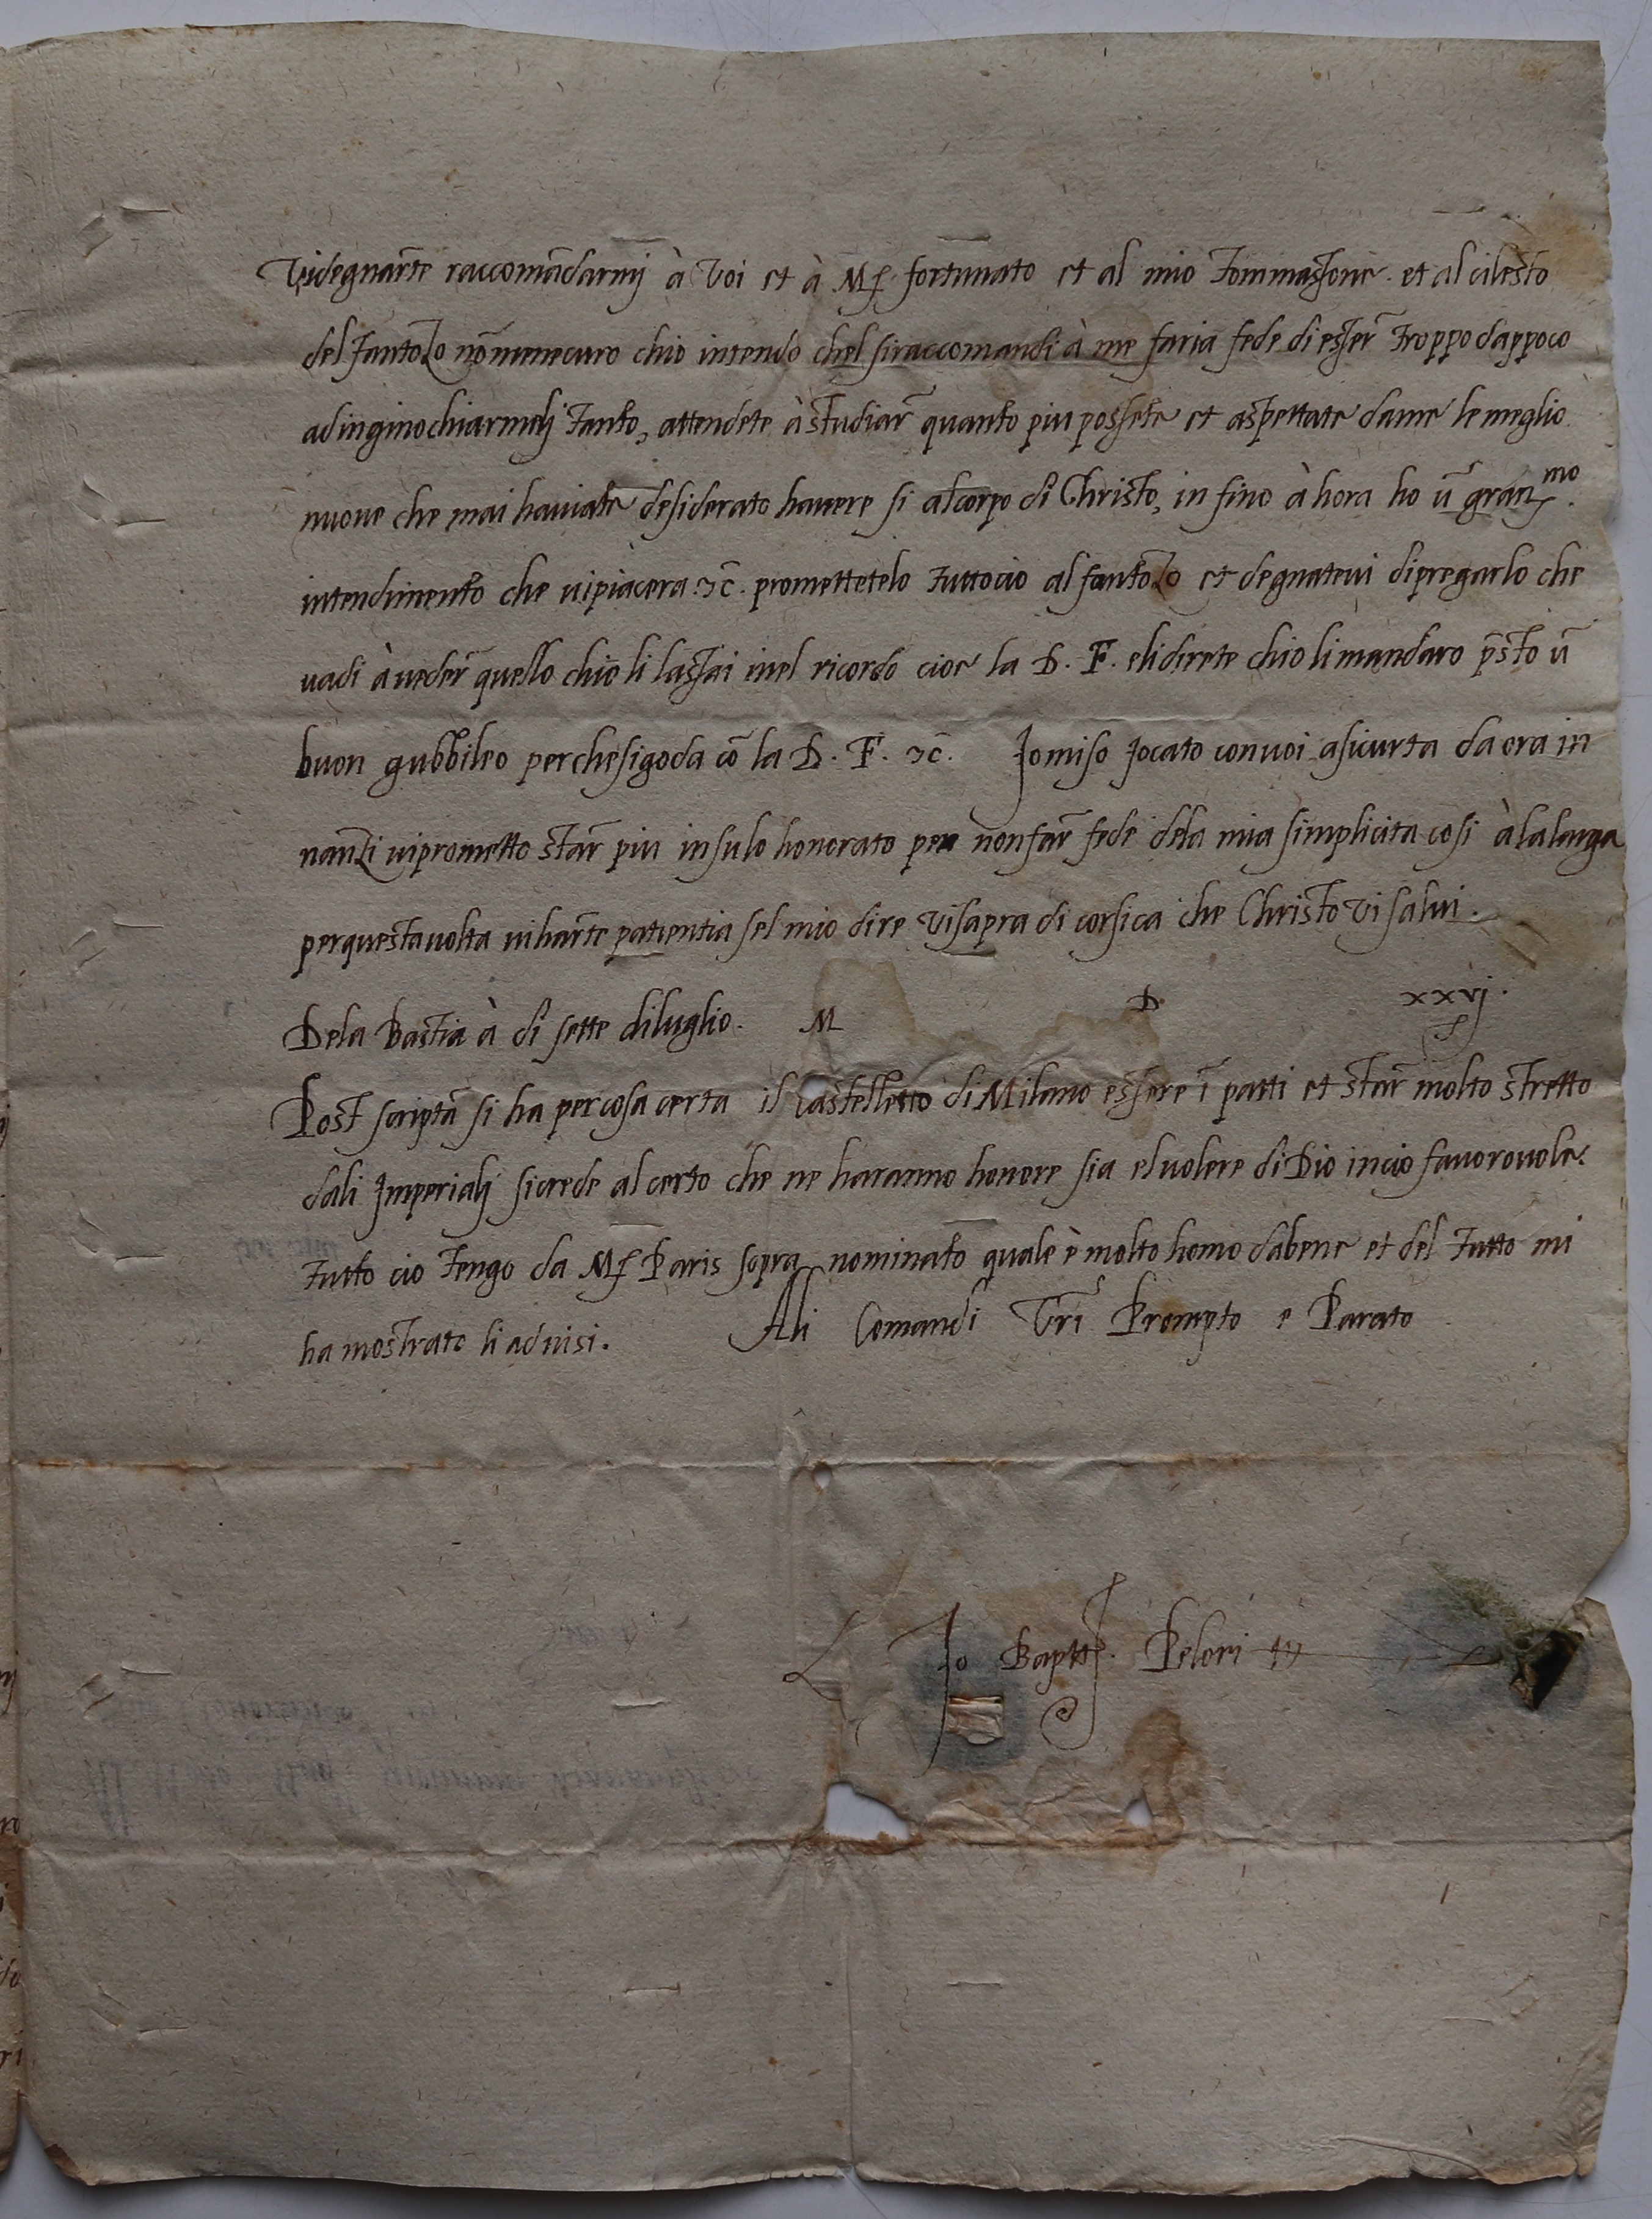 Videgnarēte raccomādarmj à Voi et à Mſ. fortunato et al mio Tommassone. et al cilesto
del fantoZo nōmenecuro chio intendo chel siraccomandi à me faria fede di esser̄ troppo dappoco
adinginochiarmelj tanto, attendete à studiar̄ quanto piu possete et aspettate dame le meglio
nuove che mai haviate desiderato havere si alcorpo di Christo, in fino à hora ho ū granmo.
intendimento che vipiacera. &c̄. promettetelo tuttocio al fantoZo et degnatevi dipregarlo che
vadi à veder̄ quello chio li lassai inel ricordo cioe la D. F. elidirete chio li mandaro p̄sto ū
buon gubbileo perchesigoda cō la D. F. &c̄. Jo miso Jocato convoi asicurta da ora in
nanZi viprometto star̄ piu insulo honorato per nonfar̄ fede dela mia simplicita cosi à lalarga
perquestavolta viharēte patientia sel mio dire Visapra di corsica che Christo Vi salvi.
Dela Bastia à di sette diluglio. M D. xxvj.
Post scripta si ha percosa certa il Castelletto di Milano essere ī patti et star̄ molto stretto
dali Jmperialj sicrede al certo che ne haranno honore sia elvolere di Dio incio favorovole.
tutto cio tengo da Mſ Paris sopra nominato quale è molto homo dabene et del tutto mi
ha mostrato li advisi. Ali Comandi Vr̄i Prompto e Parato
Jo Baptt. Pelori